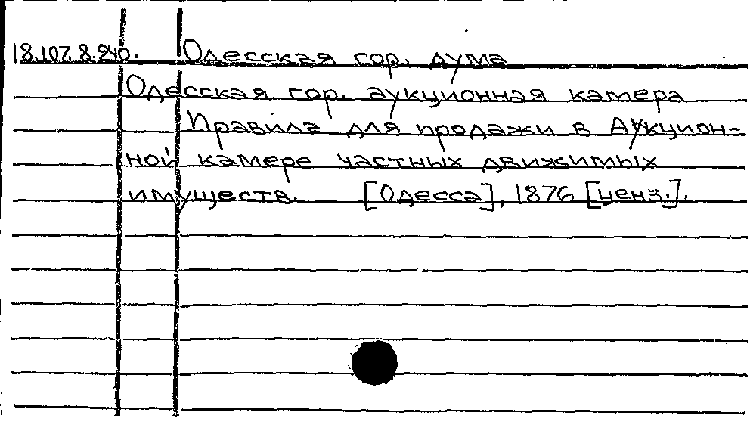 18.107.8.240. Одесская гор. дума
Одесская гор. аукционная камера
Правила для продажи в Аукцион=
ной камере частных движимых
имуществ. [Одесса], 1876 [ценз.].